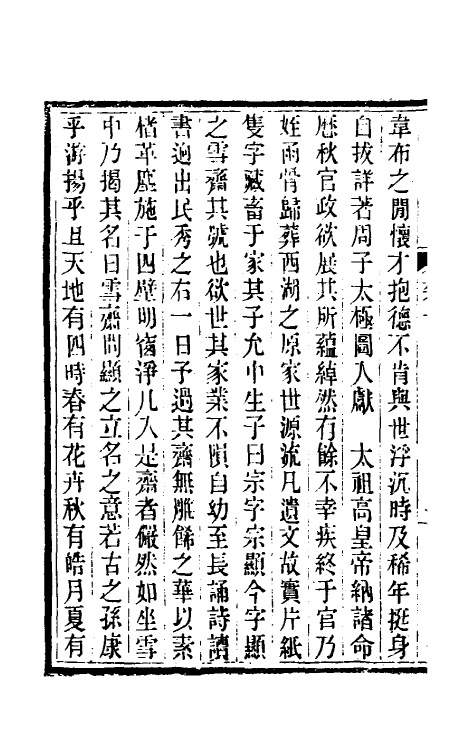 韋布之閒懷才抱德不肯與世浮沉時及稀年挺身
自拔詳著周子太極圖入獻　太祖高皇帝納諸命
歴秋官政欲展其所蘊綽然有餘不幸疾終于官乃
姪雨骨歸葬西湖之原家世源流凡遺文故實片紙
隻字藏畜于家其子允中生子曰宗字宗顯今字顯
之雪齋其號也欲世其家業不隕自幼至長誦詩讀
書迥出民秀之右一日予過其齋無雕餙之華以素
楮革塵施于四壁明窗淨几入是齋者儼然如坐雪
中乃揭其名曰雪齋問顯之立名之意若古之孫康
乎游揚乎且天地有四時春有花卉秋有皓月夏有